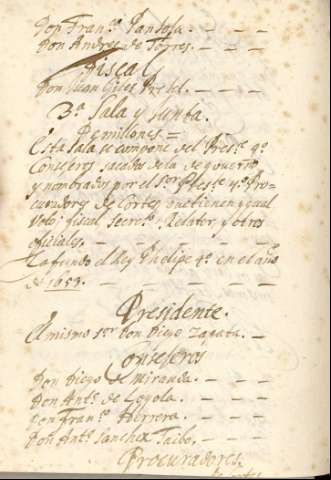 Don Fran.co Pandola. — — —
Don Andres de Torres. — — —
Fiscal
Don Juan Gines Pretel. — — —
3.a Sala y Junta.
De millones =
Esta Sala se compone del Pres.te 4.o
Consejeros, sacados de la de govierno
y nombrados por el S.or Pres.te y 4.o Pro-
curadores de Cortes que tienen ygual
Voto: fiscal, Secret.o, Relator, y otros
ofiziales. — — — —
La fundo el Rey Phelipe 4.o en el año
de 1658. — — — —
Presidente.
El mismo S.or Don Diego Zapata. — —
Consejeros
Don Diego de Miranda. — — —
Don Ant.o de Loyola. — — —
Don Fran.co Herrera. — — —
Don Ant.o Sanchez Taibo. — — —
Procuradores.